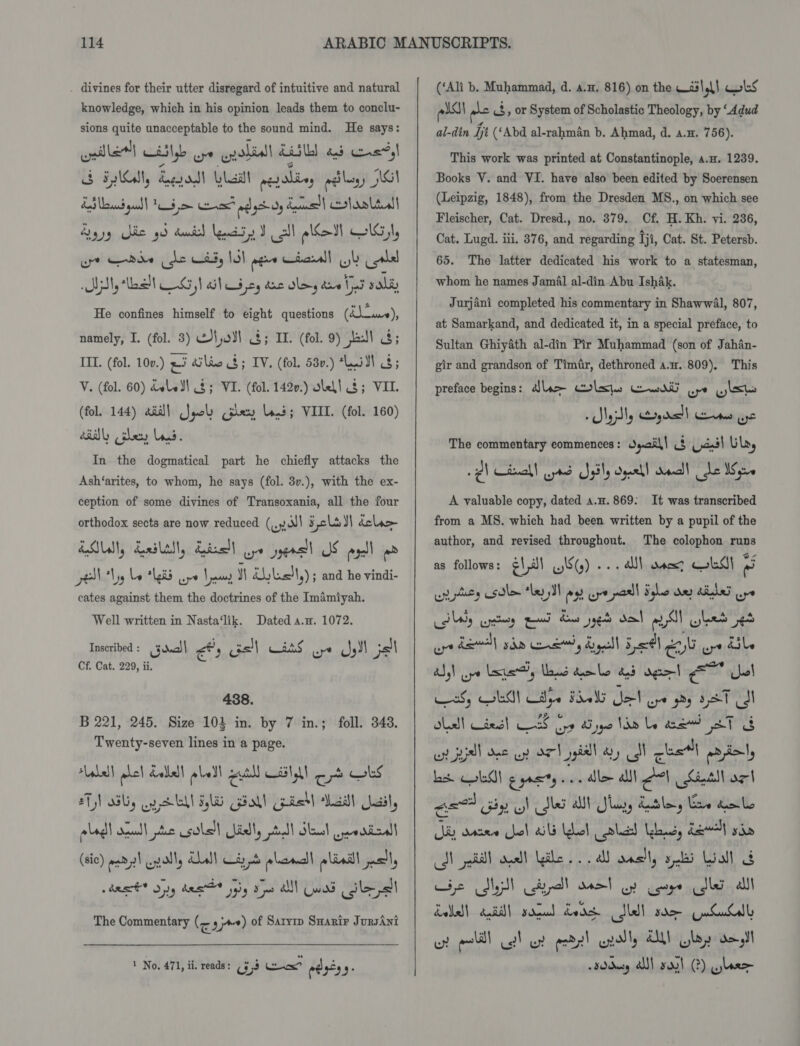 114
ARABIC MANUSCRIPTS.
divines for their utter disregard of intuitive and natural
knowledge, which in his opinion leads them to conclu-
sions quite unacceptable to the sound mind. He says:
اوضحت فيه لطائفة المقلّدين من طوائف المخالفين
انكار روسائهم ومقلّديهم القضايا البديهية والمكابرة فى
المشاهدات الحسّية ودخولهم تحت حرف¹ السوفسطائية
وارتكاب الاحكام التى لا يرتضيها لنفسه ذو عقل وروية
لعلمى بان المنصف منهم اذا وقف على مذهب من
يقلّده تبرّأ منه وحاد عنه وعرف انه ارتكب الخطاء والزلل.
He confines himself to eight questions (مسـلة),
namely, I. (fol. 3) فى الادراك; II. (fol. 9) فى النظر;
III. (fol. 10v.) فى صفاته تع; IV. (fol. 53v.) فى الانبياء;
V. (fol. 60) فى الامامة; VI. (fol. 142v.) فى المعاد; VII.
(fol. 144) فيما يتعلق باصول الفقه; VIII. (fol. 160)
فيما يتعلق بالفقه.
In the dogmatical part he chiefly attacks the
Ash‘arites, to whom, he says (fol. 3v.), with the ex-
ception of some divines of Transoxania, all the four
orthodox sects are now reduced (جماعة الاشاعرة الذين
هم اليوم كل الجمهور من الحنفية والشافعية والمالكية
والحنابلة الا يسيرا من فقهاء ما وراء النهر); and he vindi-
cates against them the doctrines of the Imāmiyah.
Well written in Nasta‘lik. Dated A.H. 1072.
Inscribed: الجز الاول من كشف الحق ونهج الصدق
Cf. Cat. 229, ii.
438.
B 221, 245. Size 10¾ in. by 7 in.; foll. 343.
Twenty-seven lines in a page.
كتاب شرح المواقف للشيخ الامام العلامة اعلم العلماء
وافضل الفضلاء المحقق المدقق نقاوة المتاخرين وناقد ارآء
المتقدمين استاذ البشر والعقل الحادى عشر السيد الهمام
والحبر القمقام الصمصام شريف الملة والدين ابرهيم (sic)
الجرجانى قدس الله سرّه ونوّر مضجعه وبرد مهجعه.
The Commentary (ممزوج) of SAYYID SHARĪF JURJĀNĪ
¹ No. 471, ii. reads: ووغولهم تحت فرق.
(‘Alī b. Muḥammad, d. A.H. 816) on the كتاب المواقف
فى علم الكلام, or System of Scholastic Theology, by ‘Aḍud
al-dīn Ījī (‘Abd al-raḥmān b. Aḥmad, d. A.H. 756).
This work was printed at Constantinople, A.H. 1239.
Books V. and VI. have also been edited by Soerensen
(Leipzig, 1848), from the Dresden MS., on which see
Fleischer, Cat. Dresd., no. 379. Cf. H. Kh. vi. 236,
Cat. Lugd. iii. 376, and regarding Ījī, Cat. St. Petersb.
65. The latter dedicated his work to a statesman,
whom he names Jamāl al-dīn Abu Isḥāk.
Jurjānī completed his commentary in Shawwāl, 807,
at Samarkand, and dedicated it, in a special preface, to
Sultan Ghiyāth al-dīn Pīr Muḥammad (son of Jahān-
gīr and grandson of Tīmūr, dethroned A.H. 809). This
preface begins: سبحان من تقدست سبحات جماله
عن سمت الحدوث والزوال.
The commentary commences: وهانا افيض فى المقصود
متوكلا على الصمد المعبود واقول ضمن المصنف الخ.
A valuable copy, dated A.H. 869. It was transcribed
from a MS. which had been written by a pupil of the
author, and revised throughout. The colophon runs
as follows: تمّ الكتاب بحمد الله ... (و)كان الفراغ
من تعليقه بعد صلوة العصر من يوم الاربعاء حادى وعشرين
شهر شعبان الكريم احد شهور سنة تسع وستين وثمانى
مائة من تاريخ الهجرة النبوية ونسخت هذه النسخة من
اصل صحيح اجتهد فيه صاحبه ضبطا وتصحيحا من اوله
الى آخره وهو من اجل تلامذة مؤلف الكتاب وكتب
فى آخر نسخته ما هذا صورته ومن كُتُب اضعف العباد
واحقرهم المحتاج الى ربه الغفور احمد بن عبد العزيز بن
احمد الشيفكى اصلح الله حاله ... ومجموع الكتاب خط
صاحبه متنًا وحاشية ويسأل الله تعالى ان يوفق لتصحيح
هذه النسخة وضبطها لتضاهى اصلها فانه اصل معتمد يقل
فى الدنيا نظيره والحمد لله ... علقها العبد الفقير الى
الله تعالى موسى بن احمد الصريفى الزوالى عرف
بالمكسكس جدد العالى خدمة لسيده الفقيه العلامة
الاوحد برهان الملة والدين ابرهيم بن ابى القاسم بن
جعمان (?) ايّده الله وسدّده.